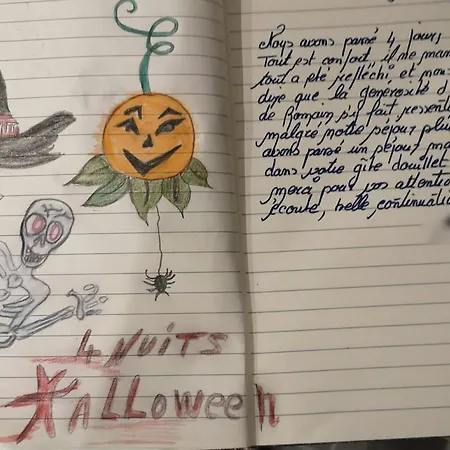 4 NUITS
HALLOWEEN
Nous avons passé 4 jours,
Tout est confort, il ne man
tout a été réfléchi, et nous
dire que la générosité d
de Romain s'y fait ressenti
malgré notre séjour plu
avons passé un séjour ma
dans votre gîte douillet
merci pour vos attention
écoute, belle continuati